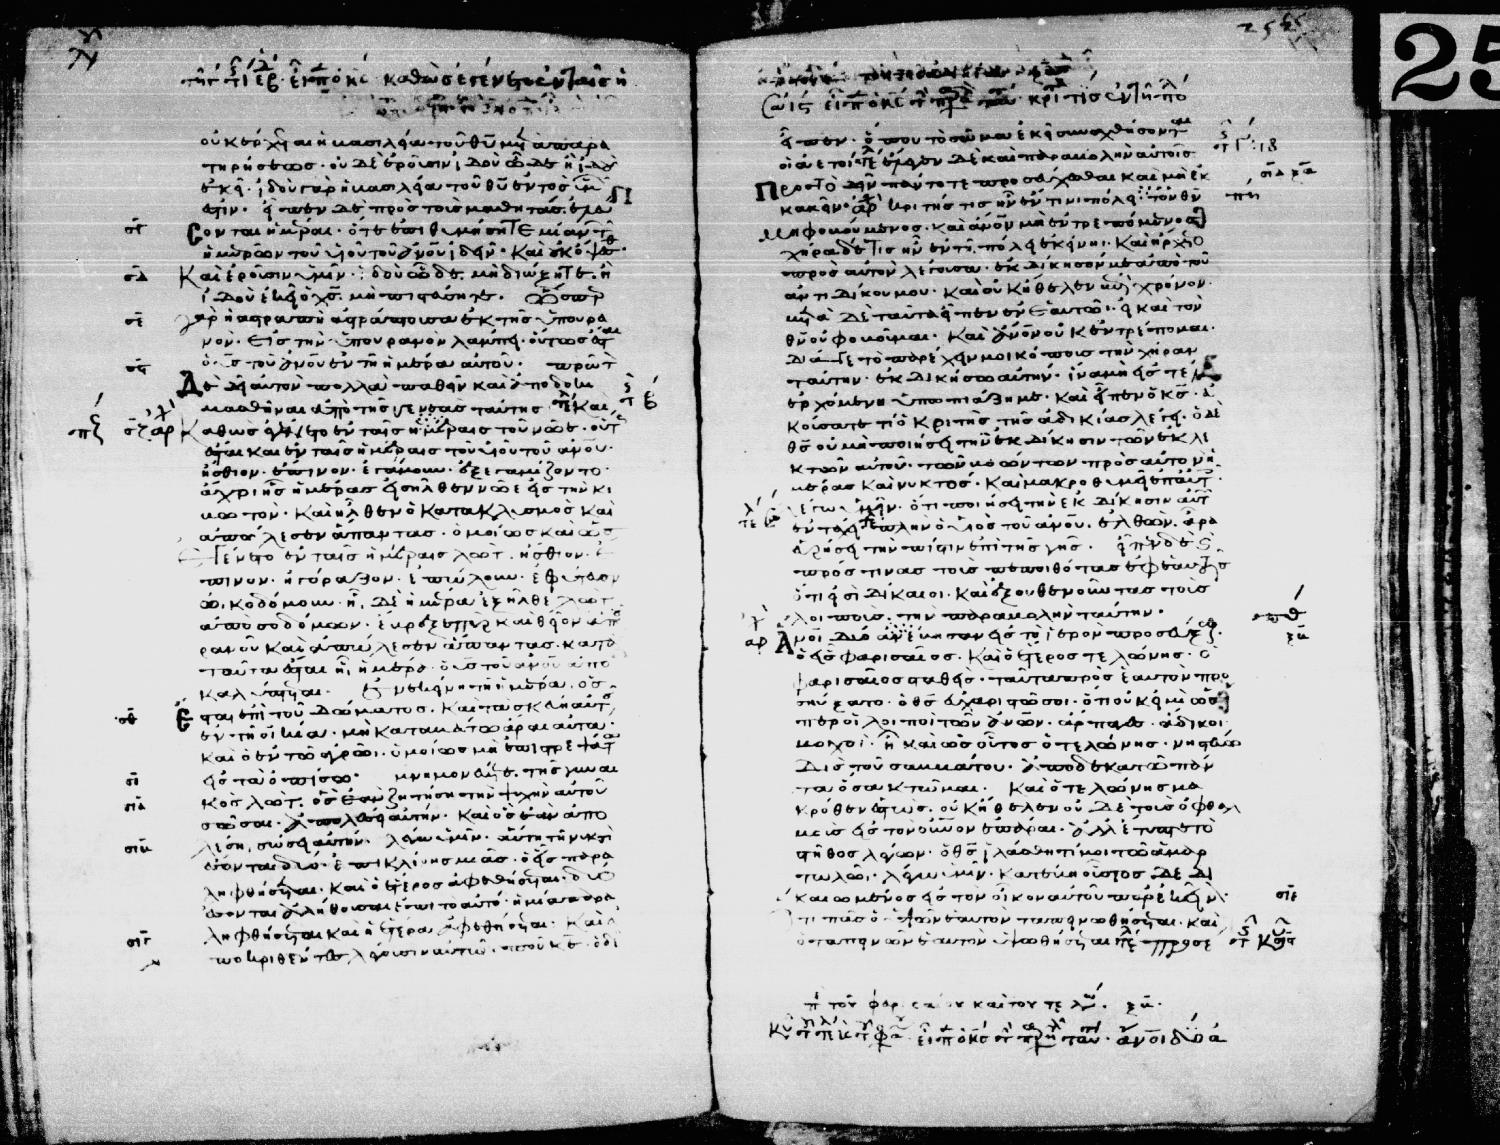 τῆς ἐπ κς καθὼς ἐγένετο ἐν ταῖς η
οὐκ ἔρχεται ἡ βασιλεία τοῦ θῦ μετὰ παρα
τηρήσεως· οὐδὲ ἐροῦσιν ἰδοὺ ὧδε ἢ ἰδοὺ
ἐκεῖ· ἰδοὺ γὰρ ἡ βασιλεία τοῦ θῦ ἐντὸς ὑμῶν
ἐστιν· εἶπεν δὲ πρὸς τοὺς μαθητάς· ἐλεύ
σε σονται ἡμέραι· ὅτε ἐπιθυμήσητε μίαν τῶν
ἡμερῶν τοῦ υἱοῦ τοῦ ἀνοῦ ἰδεῖν· καὶ οὐκ ὄψεσθε·
σδ Καὶ ἐροῦσιν ὑμῖν· ἰδοὺ ὧδε· μὴ διώξητε· ἢ
ἰδοὺ ἐκεῖ ὁ χς· μὴ πιστεύσητε· Ὥσπερ
σε γὰρ ἡ ἀστραπὴ ἀστράπτουσα ἐκ τῆς ὑπ οὐρα
νὸν· εἰς τὴν ὑπ οὐρανὸν λάμπει· οὕτως ἔσται
σς ὁ υς τοῦ ἀνοῦ ἐν τῇ ἡμέρα αὐτοῦ· πρῶτον
Δὲ δεῖ αὐτὸν πολλὰ παθεῖν καὶ ἀποδοκι
μασθῆναι ἀπὸ τῆς γενεᾶς ταύτης τε Καὶ
σζ αρ Καθὼς ἐγένετο ἐν ταῖς ἡμέραις τοῦ νῶε· οὕτως
ἔσται καὶ ἐν ταῖς ἡμέραις τοῦ υἱοῦ τοῦ ἀνοῦ·
ἤσθιον· ἔπινον· ἐγάμουν· ἐξεγαμίζοντο·
ἄχρι ἧς ἡμέρας εἰσῆλθεν νῶε εἰς τὴν κι
βωτόν· καὶ ἦλθεν ὁ κατακλυσμὸς καὶ
ἀπώλεσεν ἅπαντας· ὁμοίως καὶ ὡς
ἐγένετο ἐν ταῖς ἡμέραις λώτ· ἤσθιον· ἔ
πινον· ἠγόραζον· ἐπώλουν· ἐφύτευον
ὠκοδόμουν· ᾗ δὲ ἡμέρα ἐξῆλθε λὼτ
ἀπὸ σοδόμων· ἔβρεξε πῦρ καὶ θεῖον ἀπ
οὐρανοῦ καὶ ἀπώλεσεν ἅπαντας· κατὰ
ταῦτα ἔσται ᾗ ἡμέρα ὁ υς τοῦ ἀνοῦ ἀπο
καλύπτεται· Ἐν ἐκείνη τῇ ἡμέρα· ὃς
σθ ἔσται ἐπὶ τοῦ δώματος· καὶ τὰ σκεύη αὐτοῦ
ἐν τῇ οἰκία· μὴ καταβάτω ἆραι αὐτά·
καὶ ὁ ἐν τῶ ἀγρῶ· ὁμοίως μὴ ἐπιστρεψάτω
σι εἰς τὰ ὀπίσω· μνημονεύετε τῆς γυναι
σια κὸς λώτ· ὃς ἐὰν ζητήση τὴν ψυχὴν αὐτοῦ
σῶσαι· ἀπολέσει αὐτήν· καὶ ὃς ἐὰν ἀπο
σιβ λέση, ζωογονήσει αὐτήν· λέγω ὑμῖν· ταύτη τῇ νυκτὶ
ἔσονται δύο· ἐπὶ κλίνης μιᾶς· ὁ εἷς παρα
ληφθήσεται· καὶ ὁ ἕτερος ἀφεθήσεται· δύο
ἔσονται ἀλήθουσαι ἐπὶ τὸ αὐτό· ἡ μία παρα
σιγ ληφθήσεται καὶ ἡ ἑτέρα ἀφεθήσεται· Καὶ ἀ
ποκριθέντες λέγουσιν αὐτῶ· ποῦ κε· ὁ δὲ
εἶπεν· ὅπου τὸ σῶμα ἐκεῖ συναχθήσονται
οἱ ἀετοί τε ἔλεγεν δὲ καὶ παραβολὴν αὐτοῖς
Πρὸς τὸ δεῖν πάντοτε προσεύχεσθαι καὶ μὴ ἐκ
κακεῖν· κριτής τις ἦν ἔν τινι πόλει· τὸν θν
μὴ φοβούμενος· καὶ ἄνον μὴ ἐντρεπόμενος
χήρα δέ τις ἦν ἐν τῇ πόλει ἐκείνη· καὶ ἤρχετο
πρὸς αὐτὸν λέγουσα· ἐκδίκησόν με ἀπὸ τοῦ
ἀντιδίκου μου· καὶ οὐκ ἤθελεν ἐπὶ χρόνον·
μετὰ δὲ ταῦτα εἶπεν ἐν ἑαυτῶ· εἰ καὶ τὸν
θν οὐ φοβοῦμαι· καὶ ἄνον οὐκ ἐντρέπομαι·
διά γε τὸ παρέχειν μοι κόπους τὴν χήραν
ταύτην· ἐκδικήσω αὐτήν· ἵνα μὴ εἰς τέλος
ἐρχομένη ὑποπιάζη με· καὶ εἶπεν ὁ κς· ἀ
κούσατε τί ὁ κριτὴς τῆς ἀδικίας λέγει· ὁ δὲ
θς οὐ μὴ ποιήσει τὴν ἐκδίκησιν τῶν ἐκλε
κτῶν αὐτοῦ· τῶν βοώντων πρὸς αὐτὸν ἡ
μέρας καὶ νυκτός· καὶ μακροθυμεῖ ἐπ αὐτοῖς
λέγω ὑμῖν· ὅτι ποιήσει τὴν ἐκδίκησιν αὐτῶν
ἐν τάχει πλὴν ὁ υἱὸς τοῦ ἀνοῦ· ἐλθὼν· ἆρα
εὑρήσει τὴν πίστιν ἐπὶ τῆς γῆς· εἶπεν δὲ
πρός τινας τοὺς πεποιθότας ἐφ ἑαυτοῖς
ὅτι εἰσὶ δίκαιοι· καὶ ἐξουθενοῦντας τοὺς
λοιποὺς· τὴν παραβολὴν ταύτην·
αρ Ἄνοι δύο ἀνέβησαν εἰς τὸ ἱερὸν προσεύξασθαι·
ὁ εἷς φαρισαῖος· καὶ ὁ ἕτερος τελώνης· ὁ
φαρισαῖος σταθεὶς· ταῦτα πρὸς ἑαυτὸν προ
σηύχατο· ὁ θς εὐχαριστῶ σοι· ὅτι οὐκ εἰμὶ ὥσ
περ οἱ λοιποὶ τῶν ἀνων· ἅρπαγες· ἄδικοι·
μοιχοί· ἢ καὶ ὡς οὗτος ὁ τελώνης· νηστεύω
δὶς τοῦ σαββάτου· ἀποδεκατῶ πάν
τα ὅσα κτῶμαι· Καὶ ὁ τελώνης μα
κρόθεν ἑστὼς· οὐκ ἤθελεν οὐδὲ τοὺς ὀφθαλ
μοὺς εἰς τὸν οὐνον ἐπᾶραι· ἀλλ ἔτυπτε τὸ
στῆθος λέγων· ὁ θς ἱλάσθητί μοι τῶ ἁμαρ
τωλῶ· λέγω ὑμῖν· κατέβη οὗτος δεδι
καιωμένος εἰς τὸν οἶκον αὐτοῦ παρ ἐκεῖνον· σιε
ὅτι πᾶς ὁ ὑψῶν ἑαυτὸν ταπεινωθήσεται· καὶ
ὁ ταπεινῶν ἑαυτὸν ὑψωθήσεται τε
π τοῦ φαρισαίου καὶ τοῦ τελών· ξβ·
εἶπ ὁ κς τ πρ ταύτ· ἄνοι δύο ἀ